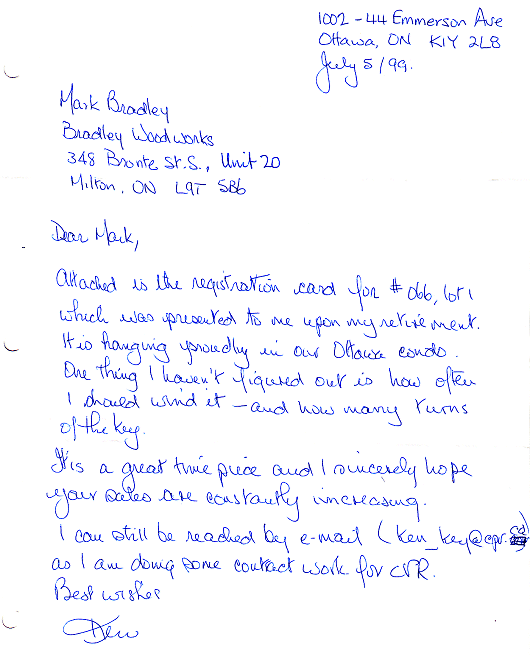 1002-44 Emmerson Ave
Ottawa, ON K1Y 2L8
July 5/99.
Mark Bradley
Bradley Woodworks
348 Bronte St. S., Unit 20
Milton, ON L9T 5B6
Dear Mark,
Attached is the registration card for #066, lot 1
which was presented to me upon my retirement.
It is hanging proudly in our Ottawa condo.
One thing I haven't figured out is how often
I should wind it - and how many turns
of the key.
It is a great time piece and I sincerely hope
your sales are constantly increasing.
I can still be reached by e-mail (ken_key@cpr.
as I am doing some contract work for CPR.
Best wishes
Ken